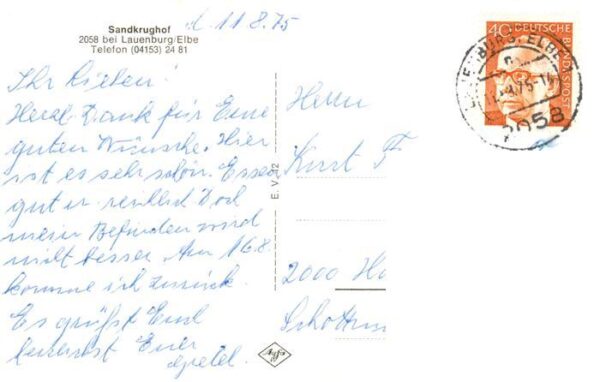 Sandkrughof
2058 bei Lauenburg/Elbe
Telefon (04153) 24 81
d. 11 8.75
Ihr Lieben!
Herzl. Dank für Eure
guten Wünsche. Hier
ist es sehr schön. Essen
gut u. reichlich Doch
mein Befinden wird
nicht besser. Am 16.8
komme ich zurück.
Es grüßt Euch
Eure
Gretel.
E. V. 12
Agfa
40 DEUTSCHE
BUNDESPOST
LAUENBURG, ELBE
75-1
2058
Herrn
Kurt F
2000 Ha